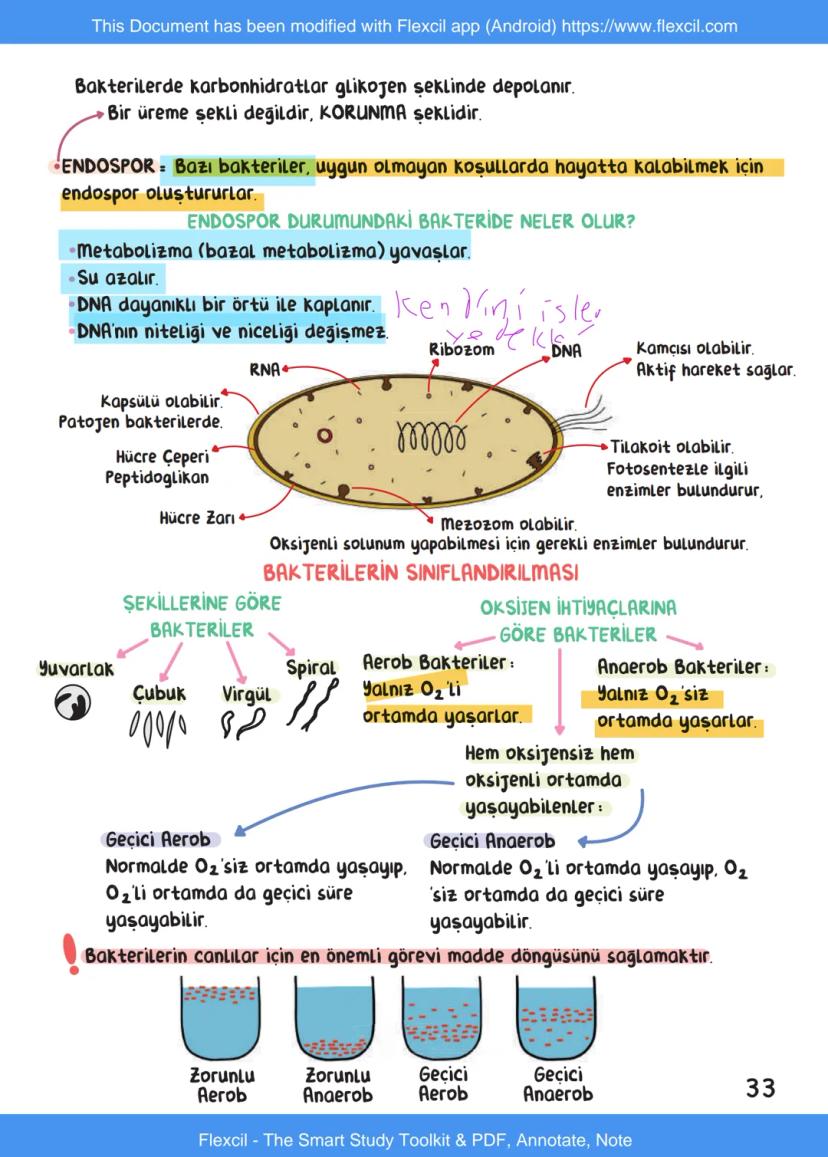 This Document has been modified with Flexcil app (Android) https://www.flexcil.com
Bakterilerde karbonhidratlar glikojen şeklinde depolanır.
Bir üreme şekli değildir, KORUNMA şeklidir.
•ENDOSPOR = Bazı bakteriler, uygun olmayan koşullarda hayatta kalabilmek için
endospor oluştururlar.
ENDOSPOR DURUMUNDAKİ BAKTERİDE NELER OLUR?
•Metabolizma (bazal metabolizma) yavaşlar.
•Su azalır.
•DNA dayanıklı bir örtü ile kaplanır.
•DNA'nın niteliği ve niceliği değişmez.
Ribozom
DNA
RNA
Kamçısı olabilir.
Aktif hareket sağlar.
Kapsülü olabilir.
Patojen bakterilerde.
Hücre Çeperi
Peptidoglikan
Tilakoit olabilir.
Fotosentezle ilgili
enzimler bulundurur,
Hücre Zarı
Mezozom olabilir.
Oksijenli solunum yapabilmesi için gerekli enzimler bulundurur.
BAKTERİLERİN SINIFLANDIRILMASI
ŞEKİLLERİNE GÖRE
BAKTERİLER
Yuvarlak
Çubuk
Virgül
Spiral
OKSİJEN İHTİYAÇLARINA
GÖRE BAKTERİLER
Aerob Bakteriler:
Yalnız O₂'li
ortamda yaşarlar.
Anaerob Bakteriler:
Yalnız O₂'siz
ortamda yaşarlar.
Hem oksijensiz hem
oksijenli ortamda
yaşayabilenler:
Geçici Aerob
Normalde O₂'siz ortamda yaşayıp,
O₂'li ortamda da geçici süre
yaşayabilir.
Geçici Anaerob
Normalde O₂'li ortamda yaşayıp, O₂
'siz ortamda da geçici süre
yaşayabilir.
! Bakterilerin canlılar için en önemli görevi madde döngüsünü sağlamaktır.
Zorunlu
Aerob
Zorunlu
Anaerob
Geçici
Aerob
Geçici
Anaerob
33
Flexcil - The Smart Study Toolkit & PDF, Annotate, Note